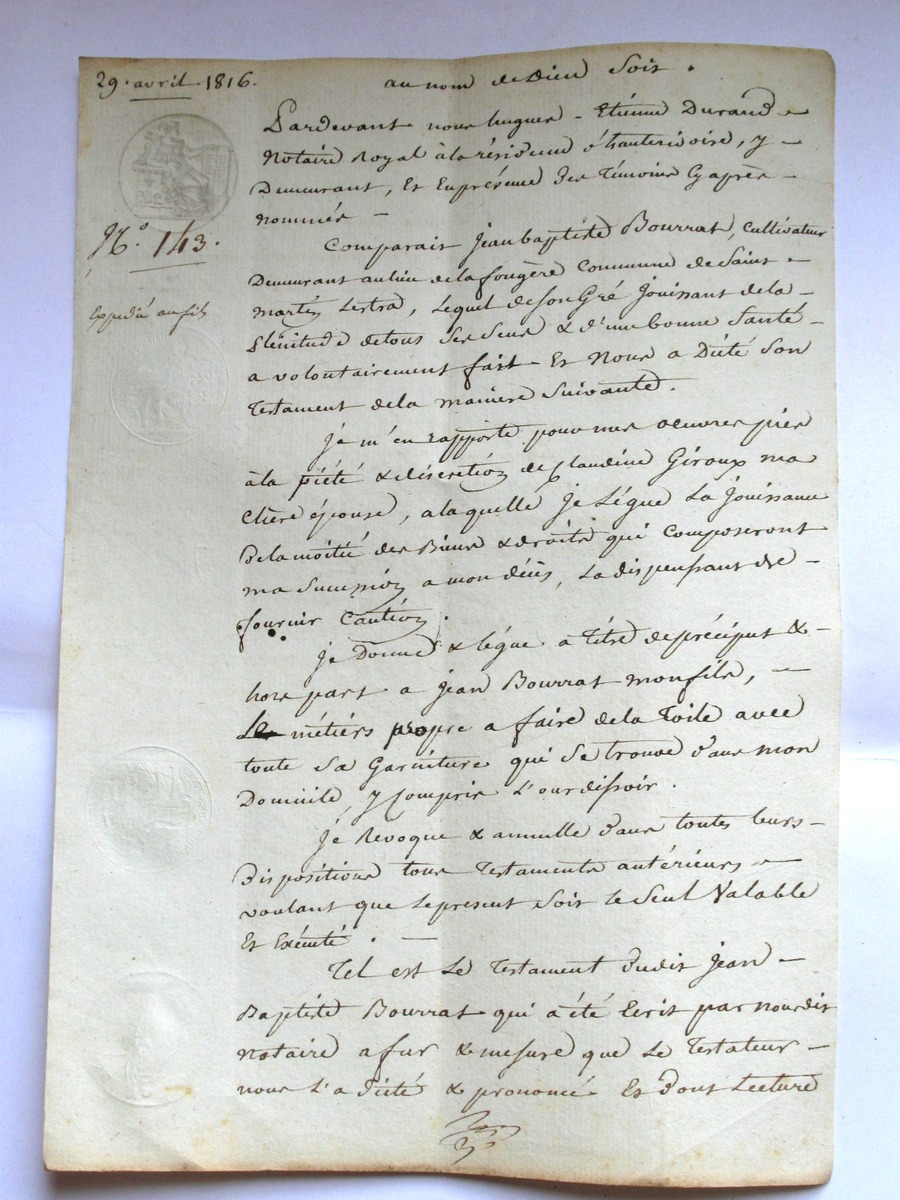 29. avril 1816.
au nom de Dieu soit.
Pardevant nous hugues-Etienne Durand
Notaire Royal à la résidence d'hauterivoire, y
Demeurant, Et En présence des Témoins Cy après
nommés
N.° 143.
Comparait Jean baptiste Bourrat, Cultivateur
Demeurant au lieu de la fougère Commune de Saint
martin Lestra, Lequel de son Gré Jouissant de la
plénitude de tous ses sens & d'une bonne Santé
Expédié au fils
a volontairement fait Et Nous a Dicté Son
Testament de la manière Suivante.
Je m'en rapporte pour mes oeuvres pies
à la piété & discrétion de Claudine Giroux ma
chère épouse, a laquelle je Lègue La Jouissance
De la moitié des Biens & droits qui Composeront
ma Succession a mon décès, La dispensant de
fournir Caution.
Je Donne & lègue a Titre de préciput &
hors part a Jean Bourrat mon fils,
Le métiers propre a faire de la Toile avec
toute Sa Garniture qui Se trouve dans mon
Domicile, y Compris L'ourdissoir.
Je Révoque & annulle dans toutes leurs
Dispositions tous Testaments antérieurs
voulant que Le présent Soit le Seul Valable
Et Exécuté.
Tel est Le Testament dudit Jean
Baptiste Bourrat qui a été Ecrit par nous dit
notaire a fur & mesure que Le Testateur
nous L'a Dicté & prononcé Et dont Lecture